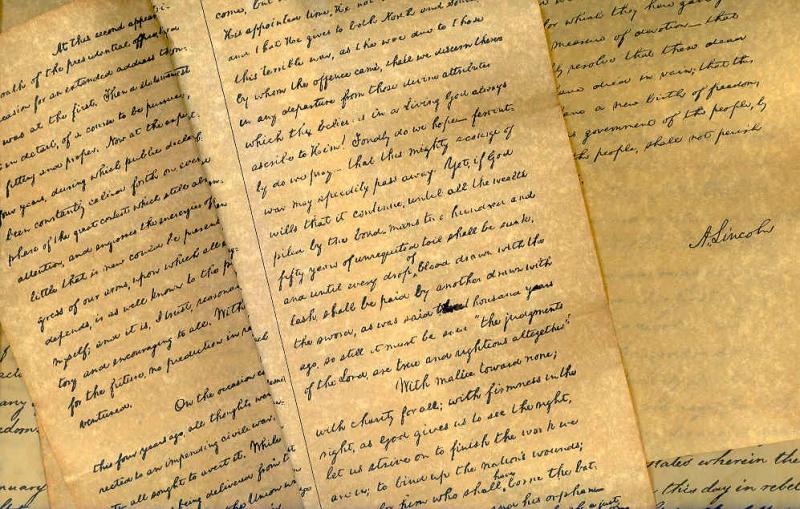 At this second appear-
oath of the presidential office,
casion for an extended address than
was at the first. Then a statement
in detail, of a course to be pursued,
fitting and proper. Now, at the expi-
four years, during which public decla
been constantly called forth on every
phase of the great contest which still ab
attention, and engrosses the energies of
little that is new could be presen
gress of our arms, upon which all
depends, is as well known to the p
myself; and it is, I trust, reasona
tory and encouraging to all. With
for the future, no prediction in
ventured.
On the occasion
this four years ago, all thoughts
rected to an impending civil war.
all sought to avert it. While
being delivered from
the Union
come, but
His appointed time, He
and that He gives to both North and South
this terrible war, as the woe due to those
by whom the offence came, shall we discern therein
in any departure from those divine attributes
which the believers in a living God always
ascribe to Him? Fondly do we hope—fervent-
ly do we pray—that this mighty scourge of
war may speedily pass away. Yet, if God
wills that it continue, until all the wealth
piled by the bond-man's two hundred and
fifty years of unrequited toil shall be sunk,
and until every drop of blood drawn with the
lash, shall be paid by another drawn with
the sword, as was said three thousand years
ago, so still it must be said "the judgments
of the Lord, are true and righteous altogether"
With malice toward none;
with charity for all; with firmness in the
right, as God gives us to see the right,
let us strive on to finish the work we
are in; to bind up the nation's wounds;
for him who shall have borne the bat
and his orphan
for which they here gave
measure of devotion—that
resolve that these dead
have died in vain; that this
have a new birth of freedom,
government of the people, by
the people, shall not perish
A. Lincoln
states wherein the
this day in rebel
any
edom.
nuary